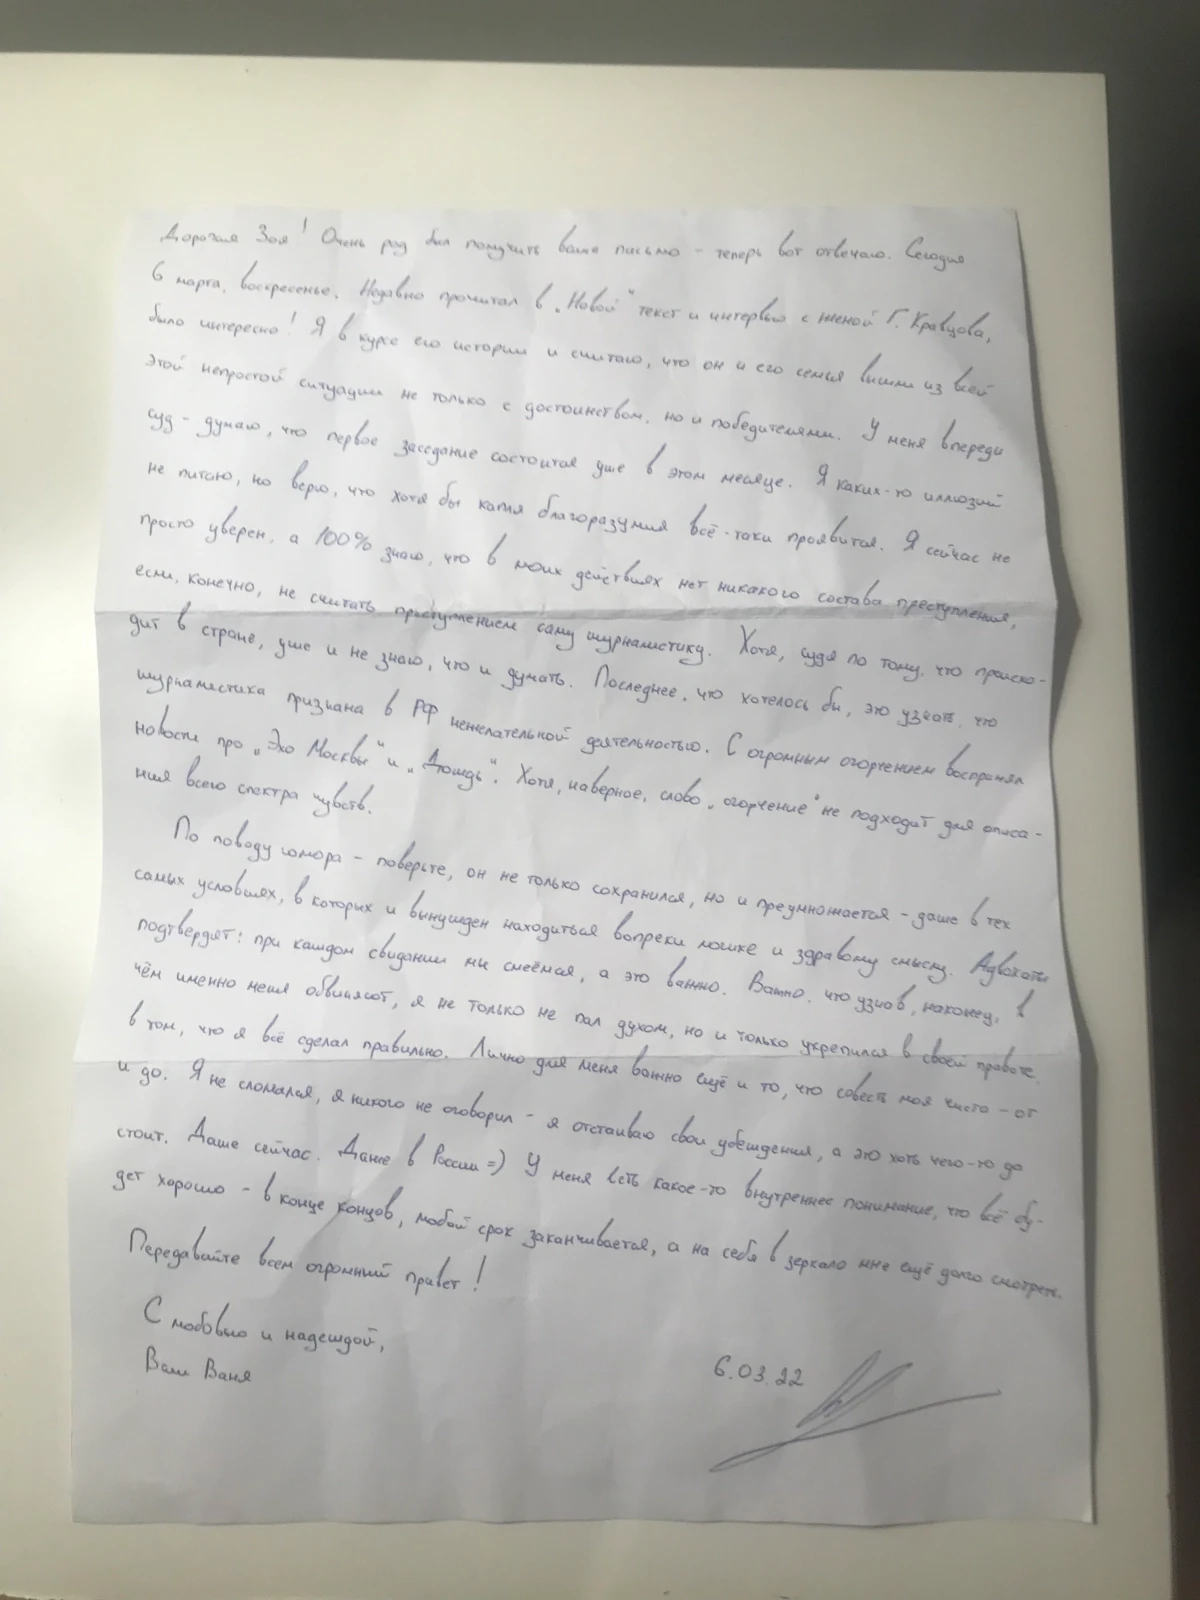 Дорогая Зоя! Очень рад был получить ваше письмо – теперь вот отвечаю. Сегодня
6 марта, воскресенье. Недавно прочитал в „Новой“ текст и интервью с женой Г. Кравцова,
было интересно! Я в курсе его истории и считаю, что он и его семья вышли из всей
этой непростой ситуации не только с достоинством, но и победителями. У меня впереди
суд – думаю, что первое заседание состоится уже в этом месяце. Я каких-то иллюзий
не питаю, но верю, что хотя бы капля благоразумия всё-таки проявится. Я сейчас не
просто уверен, а 100% знаю, что в моих действиях нет никакого состава преступления,
если, конечно, не считать преступлением саму журналистику. Хотя, судя по тому, что происхо-
дит в стране, уже и не знаю, что и думать. Последнее, что хотелось бы, это узнать, что
журналистика признана в РФ нежелательной деятельностью. С огромным огорчением воспринял
новости про „Эхо Москвы“ и „Дождь“. Хотя, наверное, слово „огорчение“ не подходит для описа-
ния всего спектра чувств.
По поводу юмора – поверьте, он не только сохранился, но и преумножается – даже в тех
самых условиях, в которых и вынужден находиться вопреки логике и здравому смыслу. Адвокаты
подтвердят: при каждом свидании мы смеёмся, а это важно. Важно, что узнав, наконец, в
чём именно меня обвиняют, я не только не пал духом, но и только укрепился в своей правоте,
в том, что я всё сделал правильно. Лично для меня важно ещё и то, что совесть моя чиста – от
и до. Я не сломался, я никого не оговорил – я отстаиваю свои убеждения, а это хоть чего-то да
стоит. Даже сейчас. Даже в России =) У меня есть какое-то внутреннее понимание, что всё бу-
дет хорошо – в конце концов, любой срок заканчивается, а на себя в зеркало мне ещё долго смотреть.
Передавайте всем огромный привет!
С любовью и надеждой,
Ваш Ваня
6.03.22